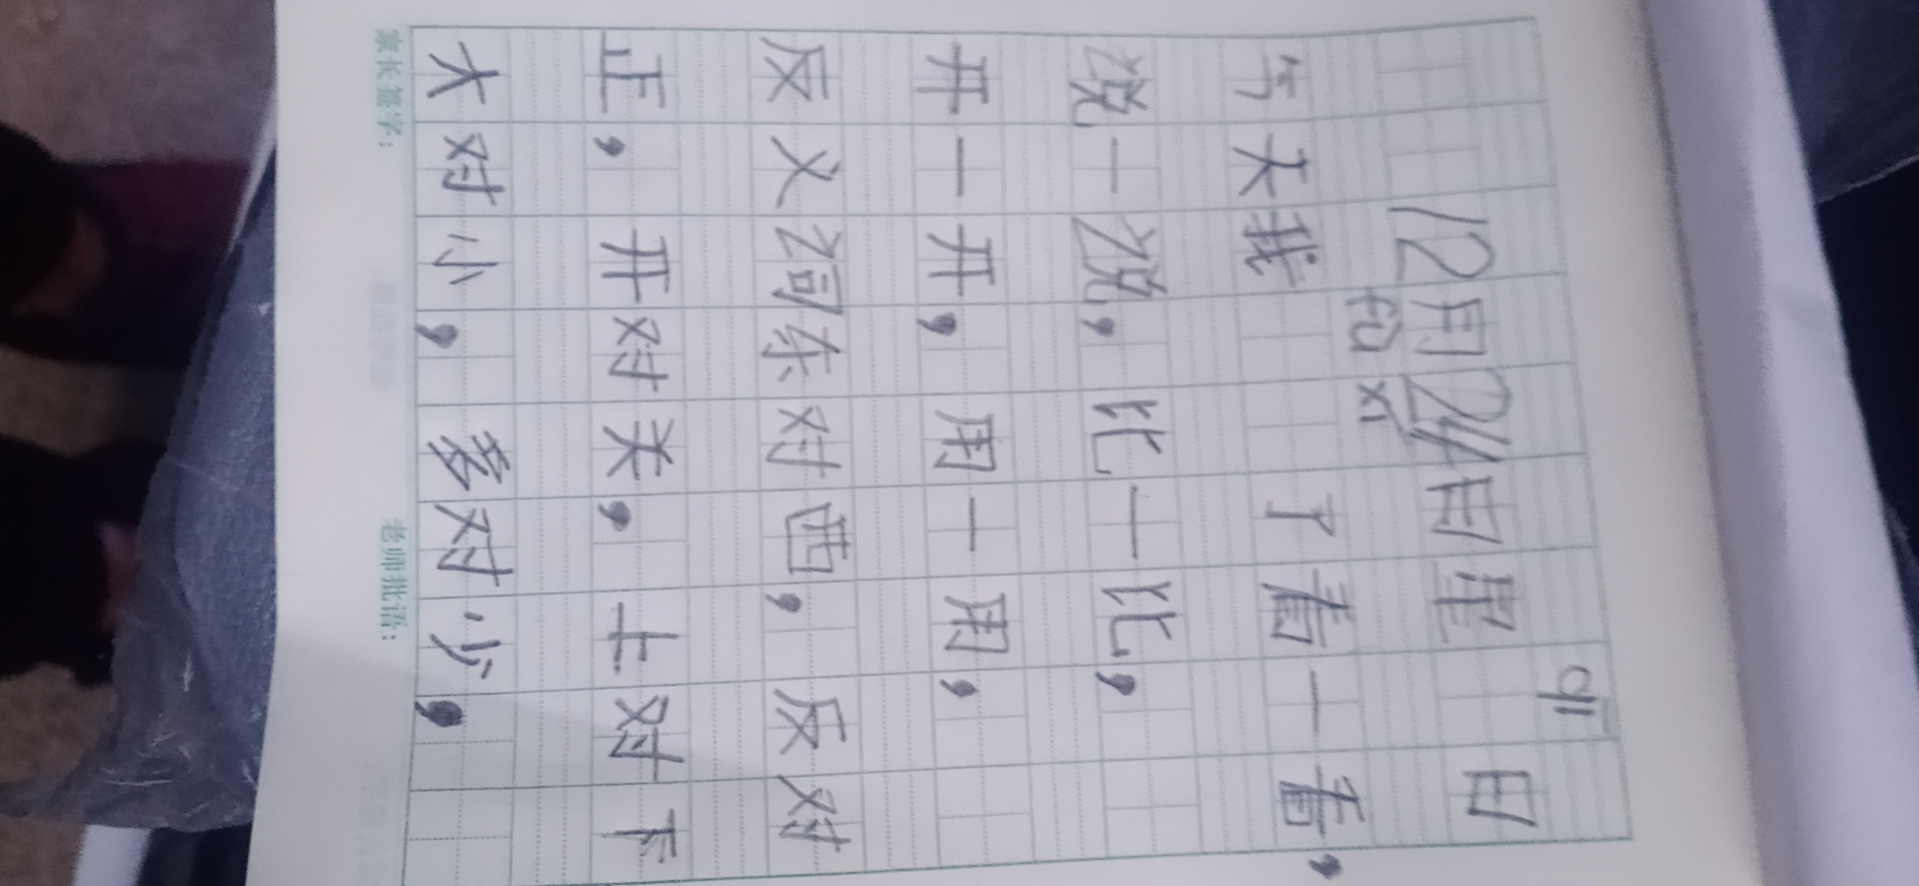 qī
12月24日星 日
fù xí
今天我 了看一看，
说一说，比一比，
开一开，用一用，
反义词东对西，反对
正，开对关，上对下
大对小，多对少，
家长签字： 老师批语：